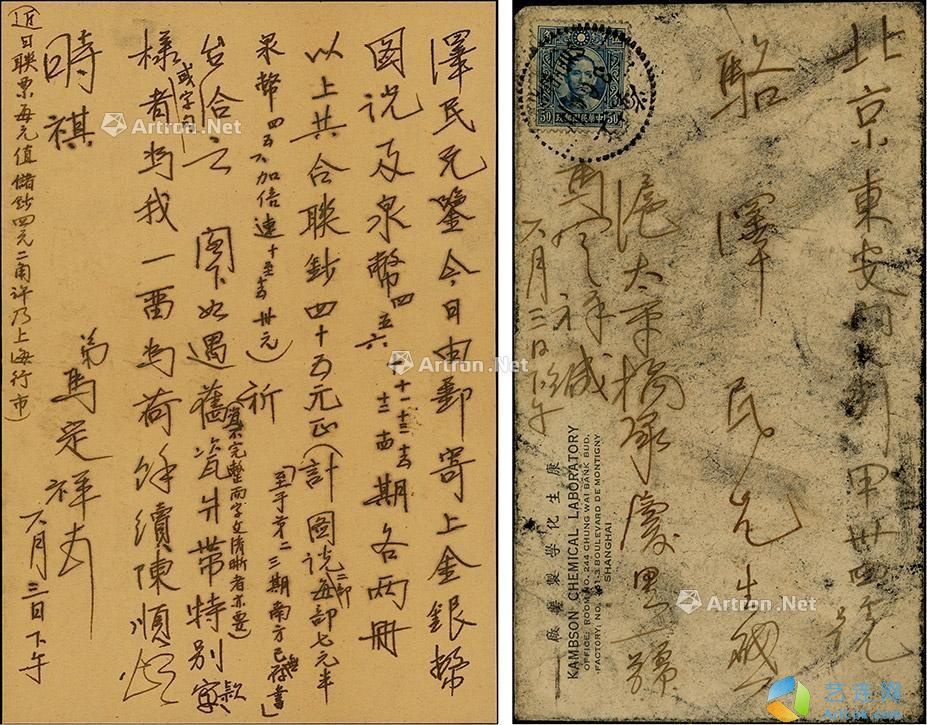 澤民兄鑒今日由郵寄上金銀幣
圖說及泉幣四五六十十一十二十三十四期各兩冊
以上共合聯鈔四十五元正(計圖說二部每部七元半
泉幣四五六加倍連十至 卅元)祈
至于第二三期南方已無存書
台洽之 閣下如遇舊瓷片帶特別
或字句
款
樣者為我一留為荷餘續陳順頌
時祺
弟馬定祥
六月三日下午
(近日聯票每元值儲鈔四元二角許乃上海行市)
北京東安門 甲卅四號
駱澤民先生
滬太平橋承慶里一號
馬定祥緘
六月三日下午
康生化學製藥廠
KAMBSON CHEMICAL LABORATORY
OFFICE: ROOM NO. 244 CHUNG WAI BANK BUD.
FACTORY: NO. 261-3 BOULEVARD DE MONTIGNY
SHANGHAI
50 中華民國郵政 50
Artron.Net
Artron.Net
Artron.Net
Artron.Net
Artron.Net
艺连网